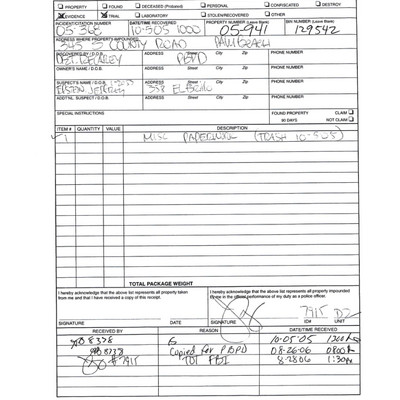 PROPERTY FOUND DECEASED (Probated) PERSONAL CONFISCATED DESTROY
EVIDENCE TRIAL LABORATORY STOLEN/RECOVERED OTHER
INCIDENT/CITATION NUMBER DATE/TIME RECOVERED PROPERTY (Leave Blank) BIN NUMBER (Leave Blank)
05 368 10-5-05 1000 05-941 129542
ADDRESS WHERE PROPERTY IMPOUNDED
345 S COUNTY ROAD PALM BEACH
DISCOVERED BY / D.O.B. ADDRESS Street City Zip PHONE NUMBER
PBPD
OWNER'S NAME / D.O.B. ADDRESS Street City Zip PHONE NUMBER
SUSPECT'S NAME / D.O.B. ADDRESS Street City Zip PHONE NUMBER
EPSTEIN, JEFFREY 358 EL BRILLO
ADDT'L SUSPECT / D.O.B. ADDRESS Street City Zip PHONE NUMBER
SPECIAL INSTRUCTIONS FOUND PROPERTY CLAIM
90 DAYS NOT CLAIM
ITEM # QUANTITY VALUE DESCRIPTION
1 MISC PAPERWORK (TRASH 10-5-05)
TOTAL PACKAGE WEIGHT
I hereby acknowledge that the above list represents all property taken from me and that I have received a copy of this receipt.
I hereby acknowledge that the above list represents all property impounded in the official performance of my duty as a police officer.
7915 D2
SIGNATURE DATE SIGNATURE ID# UNIT
RECEIVED BY REASON DATE/TIME RECEIVED
8338 10-05-05 1200h
8338 Copied for PBPD 08-26-06 0800h
#7915 TOT FBI 8-28-06 1:30pm